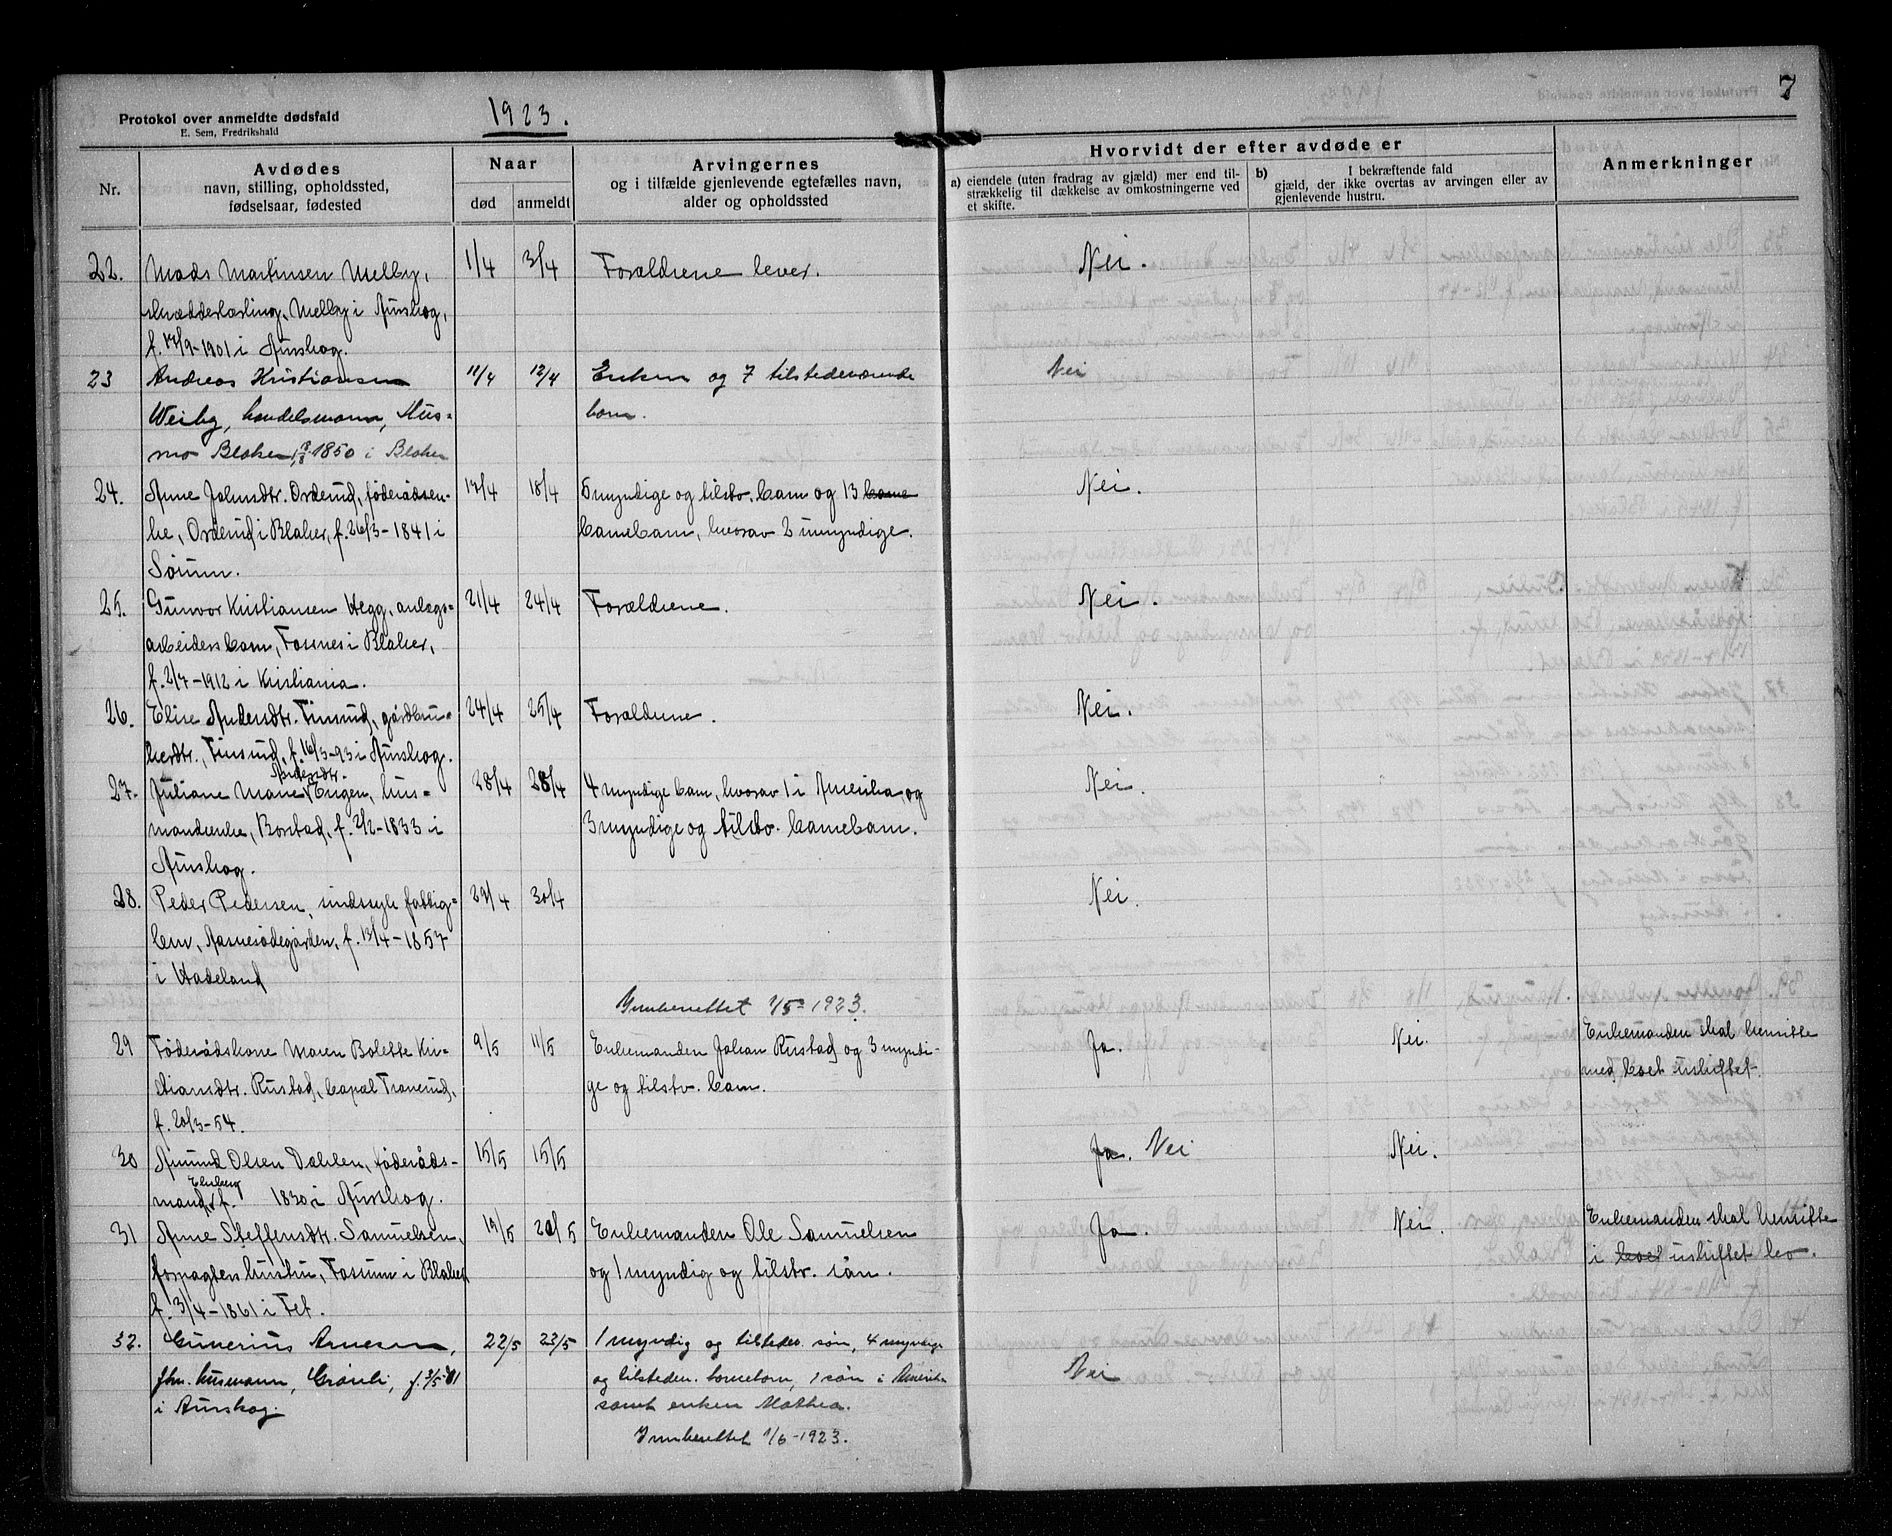 7
Protokol over anmeldte dødsfald
E. Sem, Fredrikshald
1923.
Nr.
Avdødes
navn, stilling, opholdssted,
fødselsaar, fødested
Naar
død
anmeldt
Arvingernes
og i tilfælde gjenlevende egtefælles navn,
alder og opholdssted
Hvorvidt der efter avdøde er
a) eiendele (uten fradrag av gjæld) mer end til-
strækkelig til dækkelse av omkostningerne ved
et skifte.
b) I bekræftende fald
gjæld, der ikke overtas av arvingen eller av
gjenlevende hustru.
Anmerkninger
22. Mads Martinsen Melby, 1/4 3/4 Forældrene lever. Nei.
skrædderlærling, Melby i Aurskog,
f. 17/9-1901 i Aurskog.
23 Andreas Kristiansen 11/4 12/4 Enken og 7 tilstedeværende Nei
Weiby, handelsmann, Mus= barn.
mo Blaker, 1850 i Blaker
24. Anne Johnsdtr. Orderud, føderådsen- 17/4 18/4 5 myndige og tilstv. barn og 13 barne Nei.
ke, Orderud i Blaker, f. 26/3-1841 i barnebarn, hvorav 2 umyndige.
Sørum.
25. Gunvor Kristiansen Hegg, anlægs- 21/4 24/4 Forældrene. Nei.
arbeiders barn, Fosnes i Blaker,
f. 2/7-1912 i Kristiania.
26. Elise Andersdtr. Finsrud, gårdbru- 24/4 25/4 Forældrene. Nei.
kerdtr., Finsrud, f. 16/3-93 i Aurskog.
Andersdtr.
27. Juliane Marie Engen, hus- 28/4 28/4 4 myndige barn, hvorav 1 i Amerika, og Nei.
mandsenke, Borstad, f. 2/2-1833 i 3 myndige og tilstv. barnebarn.
Aurskog.
28. Peder Pedersen, sindssyk fattig= 29/4 30/4 Nei.
lem, Aarnesødegården, f. 13/4-1857
i Hadeland
Innberettet 1/5-1923.
29 Føderådskone Maren Bolette Kris- 9/5 11/5 Enkemanden Johan Rustad og 3 myndi- Ja. Nei. Enkemanden skal hensitte
tiansdtr. Rustad, Tranerud, ge og tilstv. barn. med boet uskiftet.
f. 20/3-54.
30 Amund Olsen Dahlen, føderåds- 15/5 15/5 Ja. Nei Nei.
mand, f. 1830, i Aurskog.
31 Anne Steffensdtr. Samuelsen, 19/5 20/5 Enkemanden Ole Samuelsen Ja. Nei. Enkemanden skal hensitte
forpagters hustru, Fossum i Blaker og 1 myndig og tilstv. søn. i boet uskiftet bo.
f. 3/4-1861 i Fet.
32. Gunerius Arnesen, 22/5 23/5 1 myndig og tilstedev. søn, 4 myndige Nei
fhv. husmann, Grønli, f. 3/5-81 og tilsteden. barnebarn, 1 søn i Amerika
i Aurskog. samt enken Mathea.
Innberettet 1/6-1923.